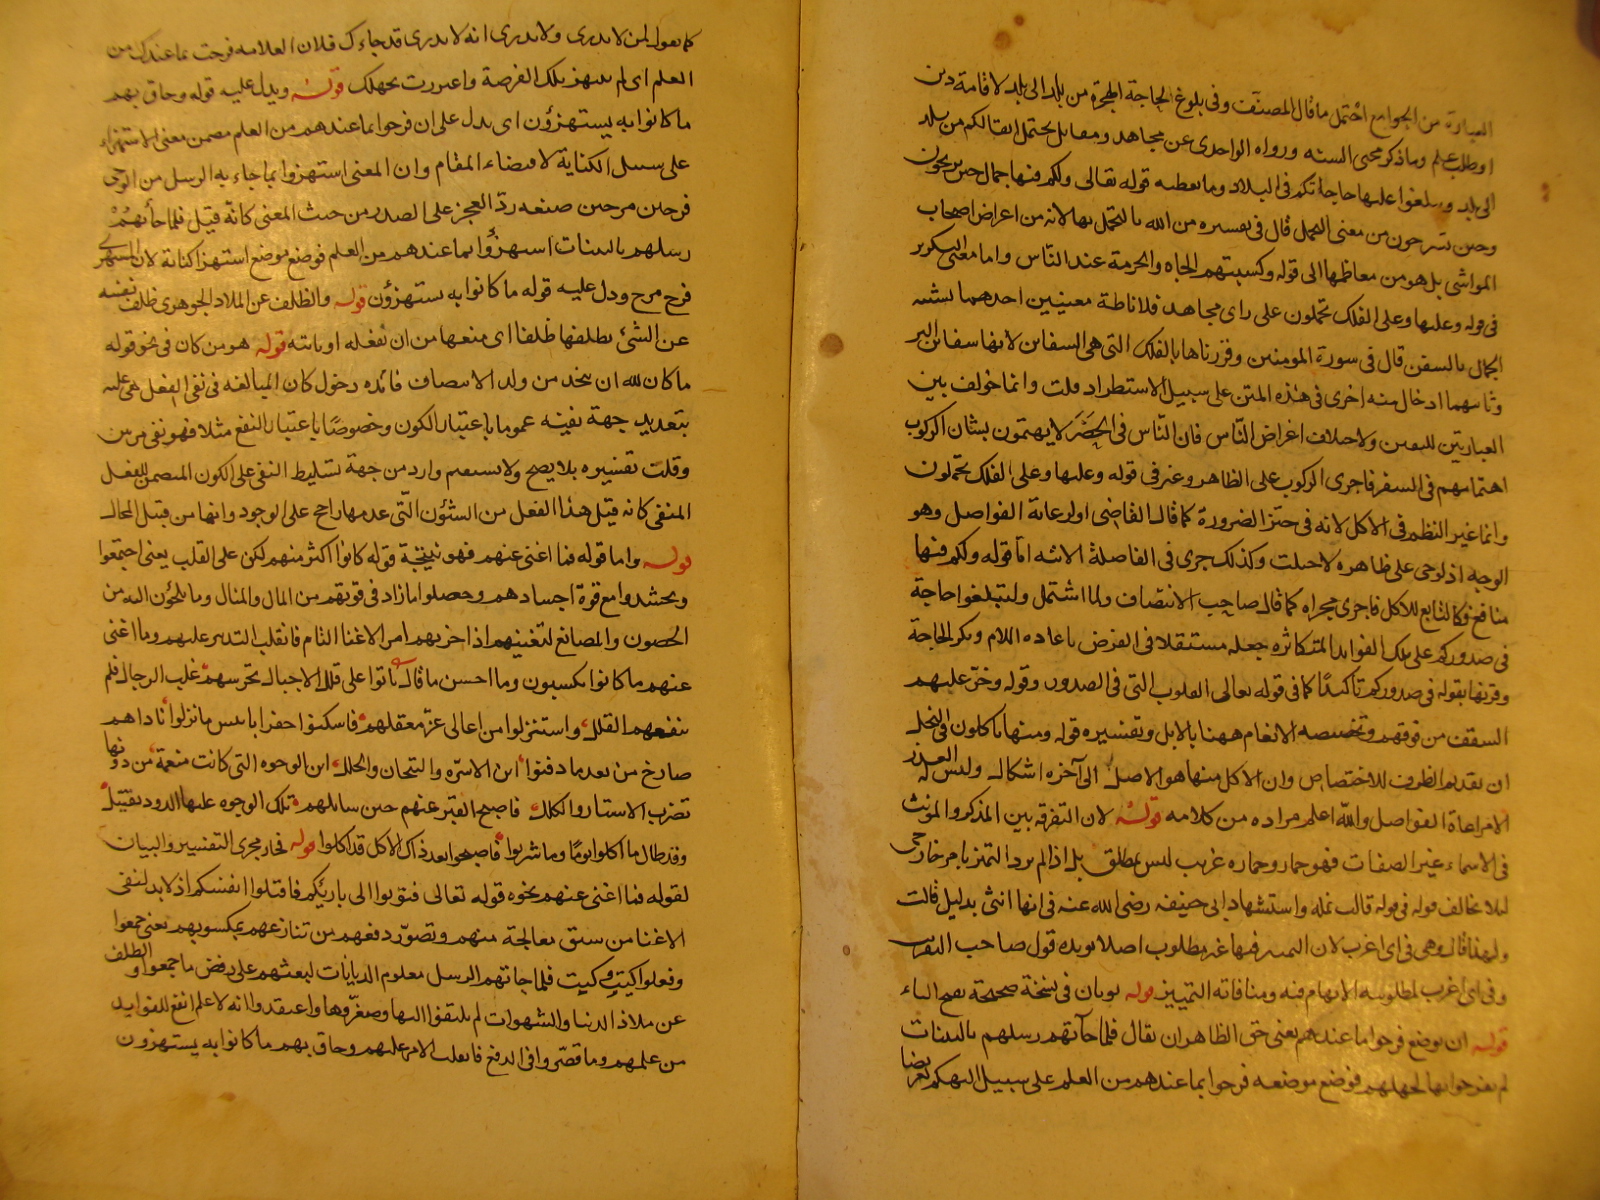 العبارة من الجوامع احتمل ما قال المصنف وفى بلوغ الحاجة الهجرة من بلد الى بلد لاقامة دين
او طلب علم وما ذكر محيى السنه ورواه الواحدى عن مجاهد ومقاتل يحتمل اثقالكم من بلد
الى بلد ولتبلغوا عليها حاجاتكم فى البلاد وما يعطيه قوله تعالى ولكم فيها جمال حين تريحون
وحين تسرحون من معنى التجمل قال فى تفسيره من الله بالتجمل بها لانه من اعراض اصحاب
المواشى بل هو من معاظمها الى قوله وكسبتهم الجاه والحرمة عند الناس واما معنى التكرير
فى قوله وعليها وعلى الفلك تحملون على راى مجاهد فلاناطة معنيين احدهما تشبيه
الجمال بالسفن قال فى سورة المومنين وقرناها بالفلك التى هى السفائن لانها سفائن البر
وثانيهما ادخال منه اخرى فى هذه المتن على سبيل الاستطراد قلت وانما خولف بين
العبارتين للتفنن ولاختلاف اغراض الناس فان الناس فى الحضر لا يهتمون بشان الركوب
اهتمامهم فى السفر فاجرى الركوب على الظاهر وغير فى قوله وعليها وعلى الفلك تحملون
وانما غير النظم فى الاكل لانه فى حيز الضرورة كما قال القاضى او لرعاية الفواصل وهو
الوجه اذ لوجى على ظاهره لاختلت وكذلك جرى فى الفاصلة الاتيه اما قوله ولكم فيها
منافع فكالتابع للاكل فاجرى مجراه كما قال صاحب الانتصاف ولما اشتمل ولتبلغوا حاجة
فى صدوركم على تلك الفوايد المتكاثره جعله مستقلا فى الغرض باعاده اللام وتكر الحاجة
وقرنها بقوله فى صدوركم تاكيدا كما فى قوله تعالى القلوب التى فى الصدور وقوله وخر عليهم
السقف من فوقهم وتخصيصه الانعام ههنا بالابل وتفسيره قوله ومنها تاكلون فى النحل
ان تقديم الظرف للاختصاص وان الاكل منها هو الاصل الى آخره اشكال وليس له العذر
الا مراعاة الفواصل والله اعلم مراده من كلامه قوله لان التفرقه بين المذكر والمونث
فى الاسماء غير الصفات فهو حمار وحماره غريب ليس بمطلق بل اذا لم يرد التميز بامر خارجى
لئلا يخالف قوله فى قوله قالت نمله واستشهاد ابى حنيفه رضى الله عنه فى انها انثى بدليل قالت
ولهذا قال وهى فى اى اغرب لان التمييز فيها غير مطلوب اصلا يويده قول صاحب التقريب
وفى اى اغرب لمطلوبيه الابهام فيه ومنافاته التمييز قوله توبان فى نسخة صحيحة بفتح الباء
قوله ان يوضع فرحوا بما عندهم يعنى حق الظاهر ان يقال فلما جآءتهم رسلهم بالبينات
لم يفرحوا بها لجهلهم فوضع موضعه فرحوا بما عندهم من العلم على سبيل التهكم تعريضا
كما تقول لمن لا يدرى ولا يدرى انه لا يدرى قد جاءك فلان العلامه فرحت بما عندك من
العلم اى لم تنتهز تلك الفرصة واغتررت بجهلك قوله ويدل عليه قوله وحاق بهم
ما كانوا به يستهزؤن اى يدل على ان فرحوا بما عندهم من العلم مضمن معنى الاستهزاء
على سبيل الكناية لاقتضاء المقام وان المعنى استهزوا بما جاء به الرسل من الوحى
فرحين مرحين صنعه رد العجز على الصدر من حيث المعنى كانه قيل فلما جآءتهم
رسلهم بالبينات استهزؤا بما عندهم من العلم فوضع موضع استهزا كناية لان المستهزى
فرح مرح ودل عليه قوله ما كانوا به يستهزؤن قوله والظلف عن الملاد الجوهرى ظلف نفسه
عن الشئ يظلفها ظلفا اى منعها من ان تفعله او تاتيه قوله هو من كان فى نحو قوله
ما كان لله ان يتخذ من ولد الانتصاف فائده دخول كان المبالغه فى نفى الفعل هى عليه
بتعديد جهة نفيه عموما باعتبار الكون وخصوصا باعتبار النفع مثلا فهو نفى مرتين
وقلت تفسيره بلا يصح ولا يستقيم وارد من جهة تسليط النفى على الكون المتضمن للفعل
المنفى كانه قيل هذا الفعل من الشئون التى عدمها راجح على الوجود وانها من قبيل المحال
قوله واما قوله فما اغنى عنهم فهو نتيجة قوله كانوا اكثر منهم لكن على القلب يعنى اجتمعوا
وبحشدوا مع قوة اجسادهم وحصلوا ما زاد فى قوتهم من المال والمنال وما يلجؤن اليه من
الحصون والمصانع لتغنيهم اذا حزبهم امر الاغنا التام فانقلب التدبير عليهم وما اغنى
عنهم ما كانوا يكسبون وما احسن ما قال باتوا على قلل الاجبال تحرسهم غلب الرجال فلم
ينفعهم القلل واستنزلوا من اعالى عز معقلهم فاسكنوا حفرا يا بئس ما نزلوا ناداهم
صارخ من بعد ما دفنوا اين الاسره والتيجان والحلل اين الوجوه التى كانت منعمة من دونها
تضرب الاستار والكلل فاصبح القبر عنهم حين سائلهم تلك الوجوه عليها الدود يقتتل
وقد طال ما اكلوا يوما وما شربوا فاصبحوا بعد ذاك الاكل قد اكلوا قوله فجار مجرى التفسير والبيان
لقوله فما اغنى عنهم نحوه قوله تعالى فتوبوا الى بارئكم فاقتلوا انفسكم اذ لا بد لنفى
الاغنا من سبق معالجة منهم وتصور دفعهم من تنازعهم بمكسوبهم يعنى جمعوا
وفعلوا كيت وكيت فلما جاءتهم الرسل معلوم الديانات لبعثهم على رفض ما جمعوا والظلف
عن ملاذ الدنيا والشهوات لم يلتفتوا اليها وصغروها واعتقدوا انه لا علم انفع للفوايد
من علمهم وما قصروا فى الدفع فانقلب الامر عليهم وحاق بهم ما كانوا به يستهزؤن